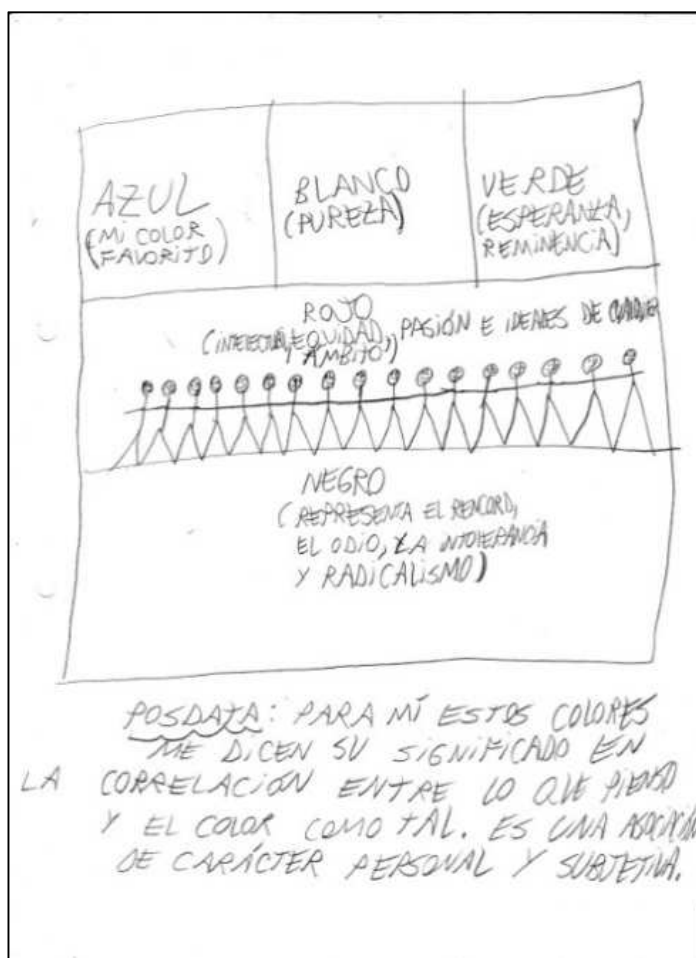 AZUL
(MI COLOR
FAVORITO)
BLANCO
(PUREZA)
VERDE
(ESPERANZA,
REMINENCIA)
ROJO
(INTELECTUAL, EQUIDAD, PASIÓN E IDEALES DE CUALQUIER
ÁMBITO)
NEGRO
(REPRESENTA EL RENCORD,
EL ODIO, LA INTOLERANCIA
Y RADICALISMO)
POSDATA: PARA MÍ ESTOS COLORES
ME DICEN SU SIGNIFICADO EN
LA CORRELACIÓN ENTRE LO QUE PIENSO
Y EL COLOR COMO TAL. ES UNA ASOCIACIÓN
DE CARÁCTER PERSONAL Y SUBJETIVA.